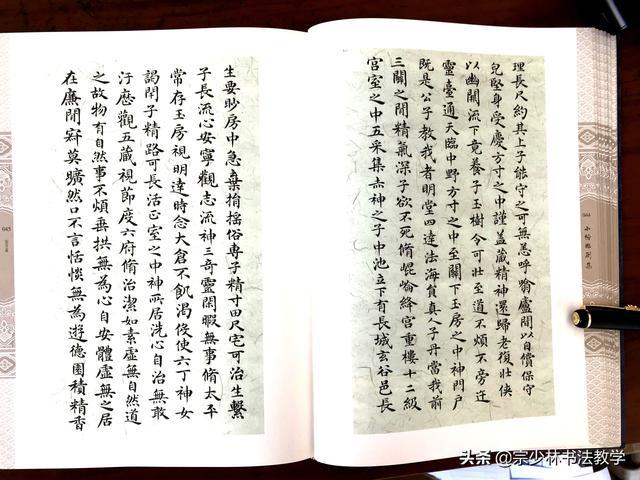 理長尺約其上子能守之可無恙呼噏廬間以自償保守
皃堅身受慶方寸之中謹蓋藏精神還歸老復壯俠
以幽關流下竟養子玉樹令可壯至道不煩不旁迕
靈臺通天臨中野方寸之中至關下玉房之中神門戶
既是公子教我者明堂四達法海員真人子丹當我前
三關之閒精氣深子欲不死脩崐崘絳宮重樓十二級
宮室之中五采集赤神之子中池立下有長城玄谷邑長
生要眇房中急棄捐搖俗專子精寸田尺宅可治生繫
子長流心安寧觀志流神三奇靈閑暇無事脩太平
常存玉房視明達時念大倉不飢渴伇使六丁神女
謁閇子精路可長活正室之中神所居洗心自治無敢
汙歷觀五藏視節度六府脩治潔如素虛無自然道
之故物有自然事不煩垂拱無為心自安體虛無之居
在廉閒寂莫曠然口不言恬惔無為遊德園積精香
044
045
头条 @宗少林书法教学